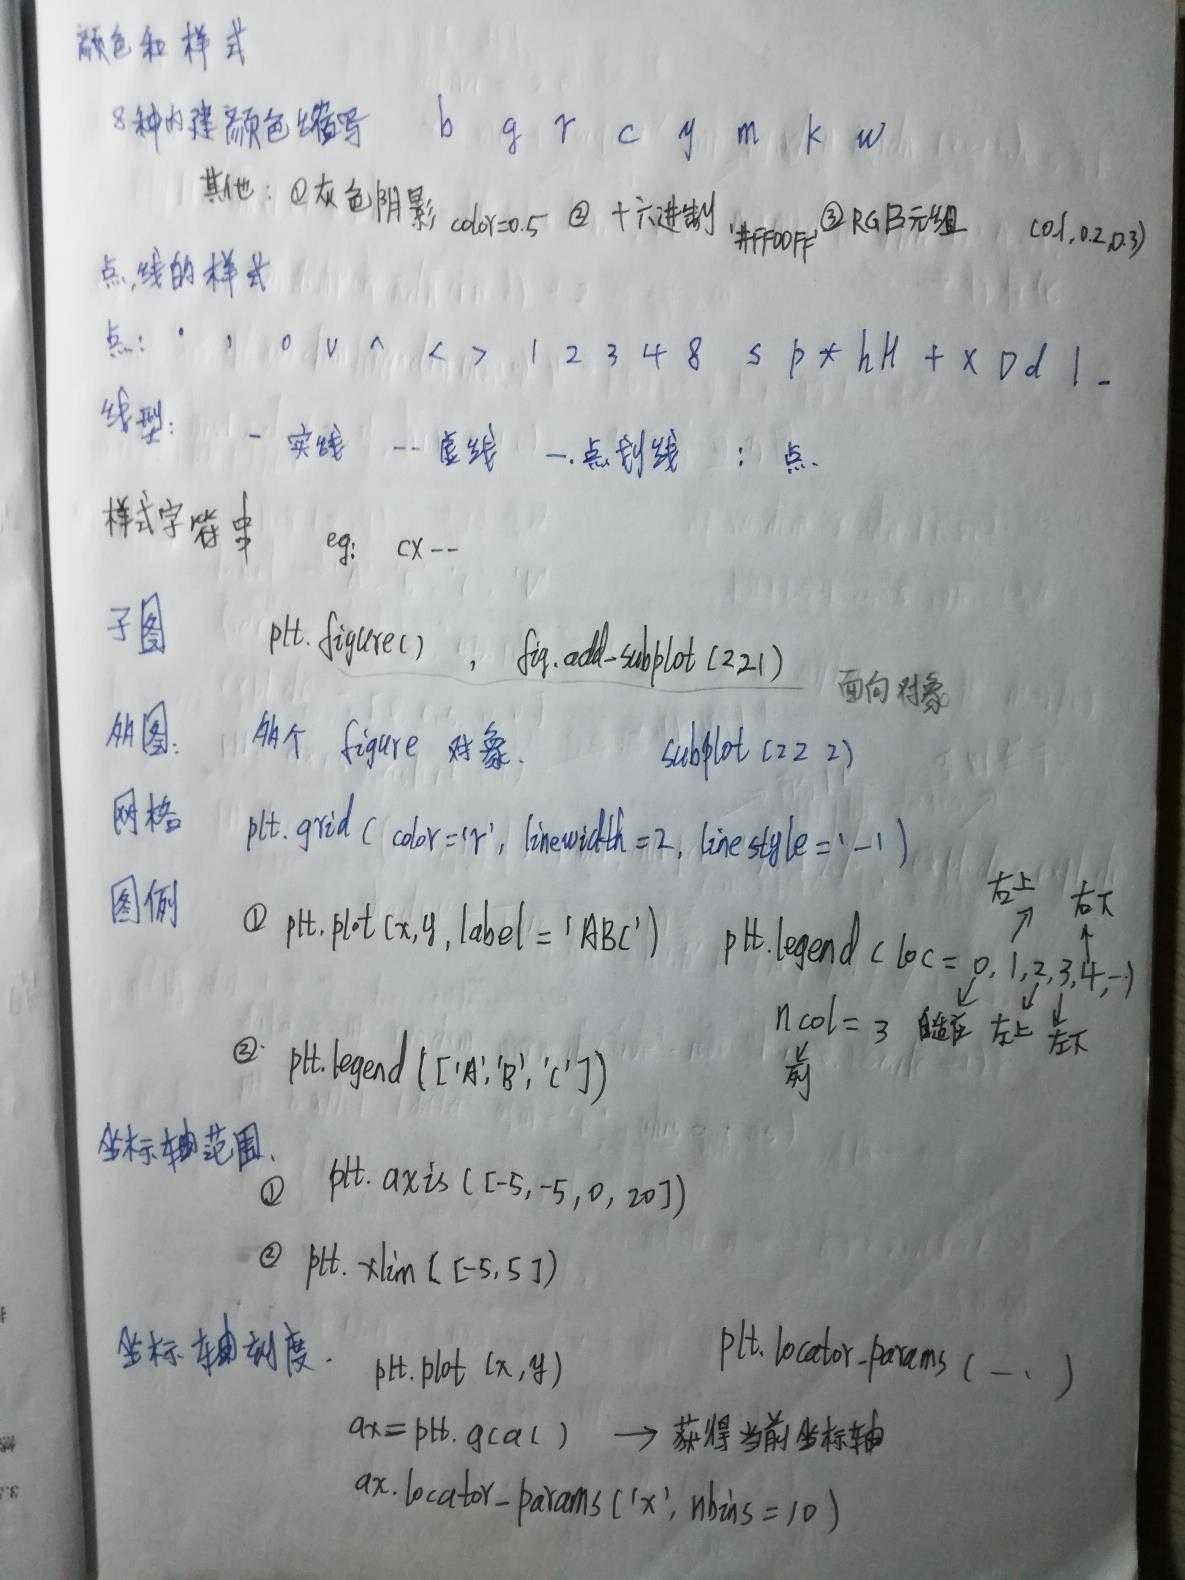 颜色和样式
8种内建颜色缩写 b g r c y m k w
其他: ①灰色阴影 color=0.5 ② 十六进制 '#FF00FF' ③RGB元组 (0.1,0.2,0.3)
点,线的样式
点: · , o v ^ < > 1 2 3 4 8 s p * h H + x D d | _
线型: - 实线 -- 虚线 -. 点划线 : 点
样式字符串 eg: cx--
子图 plt.figure() , fig.add-subplot(221) 面向对象
多图: 多个 figure 对象. subplot(2 2 2)
网格 plt.grid( color='r', linewidth=2, linestyle='-')
图例 ① plt.plot(x,y,label='ABC') plt.legend(loc=0,1,2,3,4,-)
右上 右下
ncol=3 自适应 左上 左下
列
② plt.legend(['A','B','C'])
坐标轴范围.
① plt.axis([-5,-5,0,20])
② plt.xlim([-5,5])
坐标轴刻度. plt.plot(x,y) plt.locator-params(-.)
ax=plt.gca() → 获得当前坐标轴
ax.locator-params('x', nbins=10)